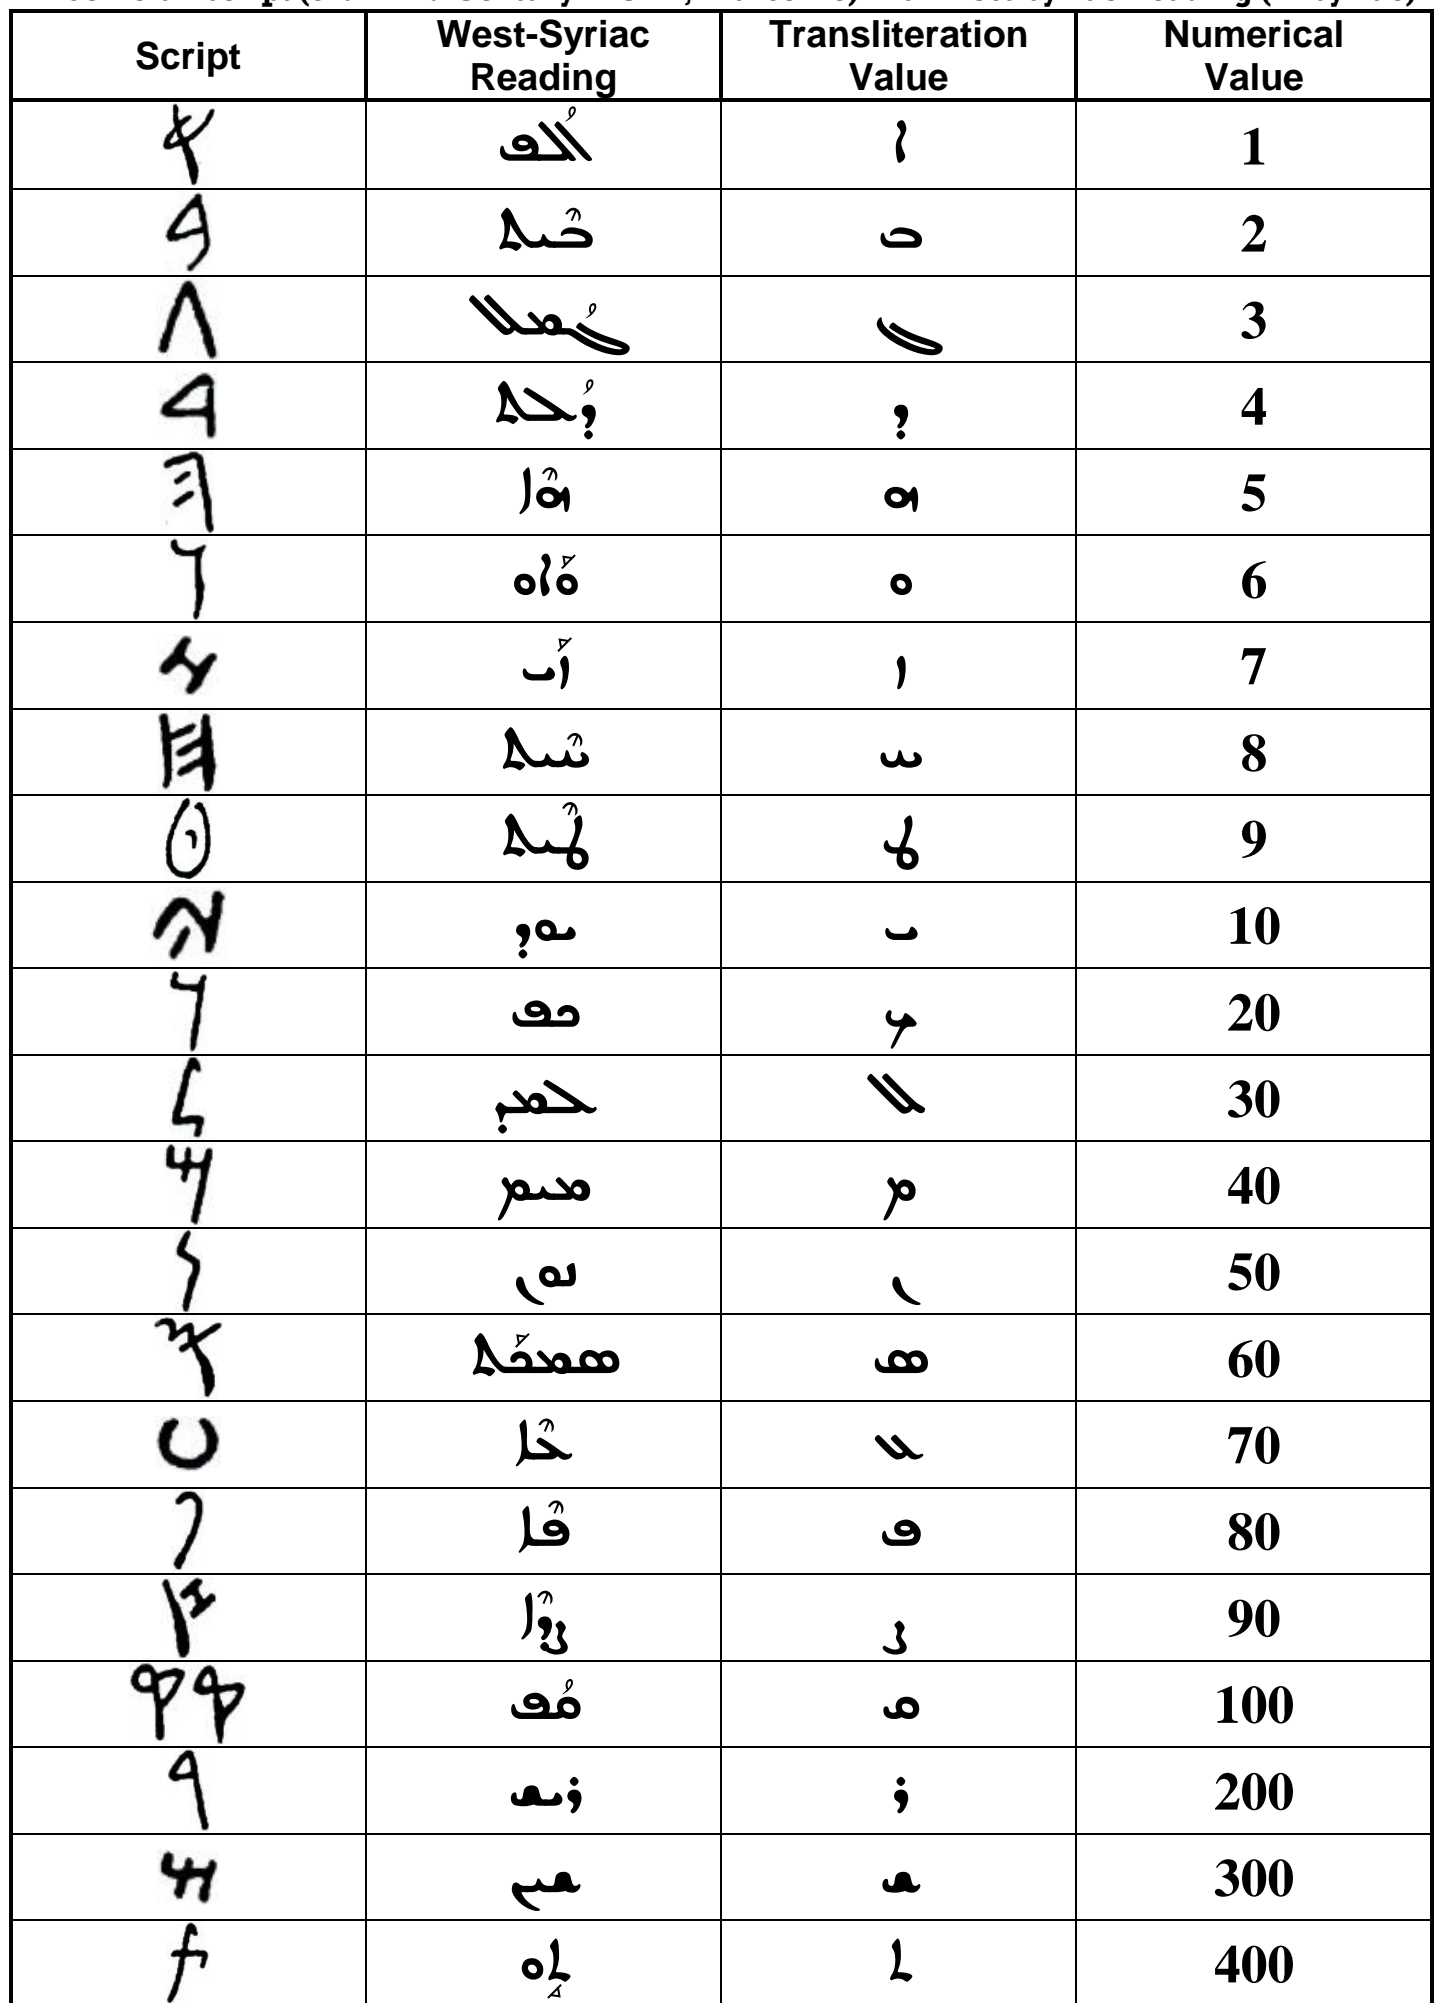 Script West-Syriac Reading Transliteration Value Numerical Value
𐤀 ܐܳܠܦ ܐ 1
𐤁 ܒܶܝܬ ܒ 2
𐤂 ܓܳܡܠ ܓ 3
𐤃 ܕܳܠܬ ܕ 4
𐤄 ܗܶܐ ܗ 5
𐤅 ܘܰܐܘ ܘ 6
𐤆 ܙܰܝ ܙ 7
𐤇 ܚܶܝܬ ܚ 8
𐤈 ܛܶܝܬ ܛ 9
𐤉 ܝܘܕ ܝ 10
𐤊 ܟܦ ܟ 20
𐤋 ܠܡܕ ܠ 30
𐤌 ܡܝܡ ܡ 40
𐤍 ܢܘܢ ܢ 50
𐤎 ܣܡܟܰܬ ܣ 60
𐤏 ܥܶܐ ܥ 70
𐤐 ܦܶܐ ܦ 80
𐤑 ܨܕܶܐ ܨ 90
𐤒𐤒 ܩܳܦ ܩ 100
𐤓 ܪܝܫ ܪ 200
𐤔 ܫܝܢ ܫ 300
𐤕 ܬܱܘ ܬ 400